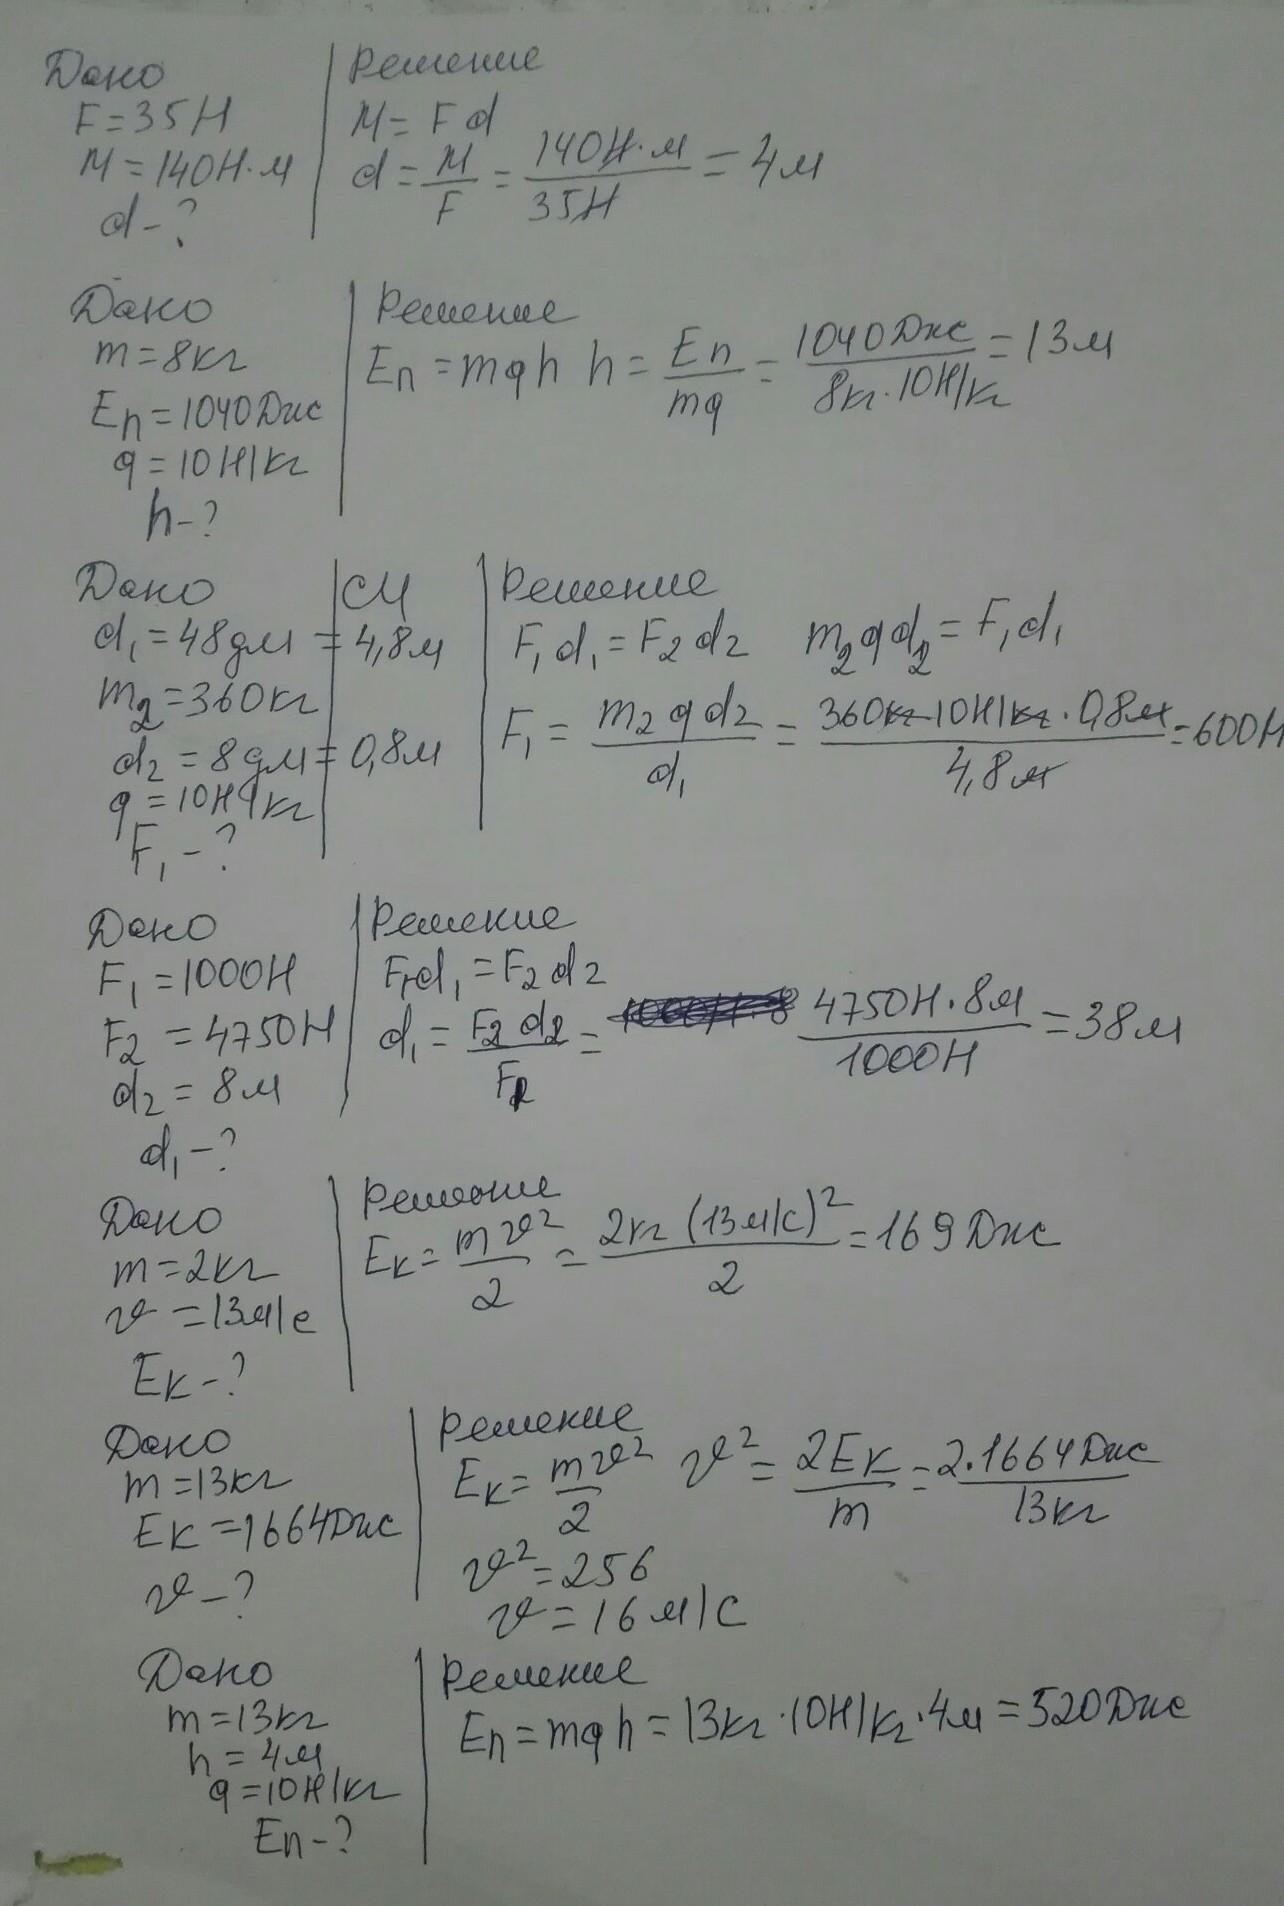 Дано
F=35Н
M=140Н·м
d-?
Решение
M= Fd
d=M/F=140Н·м/35Н=4м
Дано
m=8кг
Eп=1040Дж
g=10Н/кг
h-?
Решение
Eп=mgh h=Eп/mg=1040Дж/8кг·10Н/кг=13м
Дано
d₁=48дм
m₂=360кг
d₂=8дм
g=10Н/кг
F₁-?
СИ
=4,8м
=0,8м
Решение
F₁d₁=F₂d₂ m₂gd₂=F₁d₁
F₁=m₂gd₂/d₁=360кг·10Н/кг·0,8м/4,8м=600Н
Дано
F₁=1000Н
F₂=4750Н
d₂=8м
d₁-?
Решение
F₁d₁=F₂d₂
d₁=F₂d₂/F₁=4750Н·8м/1000Н=38м
Дано
m=2кг
v=13м/с
Eк-?
Решение
Eк=mv²/2=2кг(13м/с)²/2=169Дж
Дано
m=13кг
Eк=1664Дж
v-?
Решение
Eк=mv²/2 v²=2Eк/m=2·1664Дж/13кг
v²=256
v=16м/с
Дано
m=13кг
h=4м
g=10Н/кг
Eп-?
Решение
Eп=mgh=13кг·10Н/кг·4м=520Дж